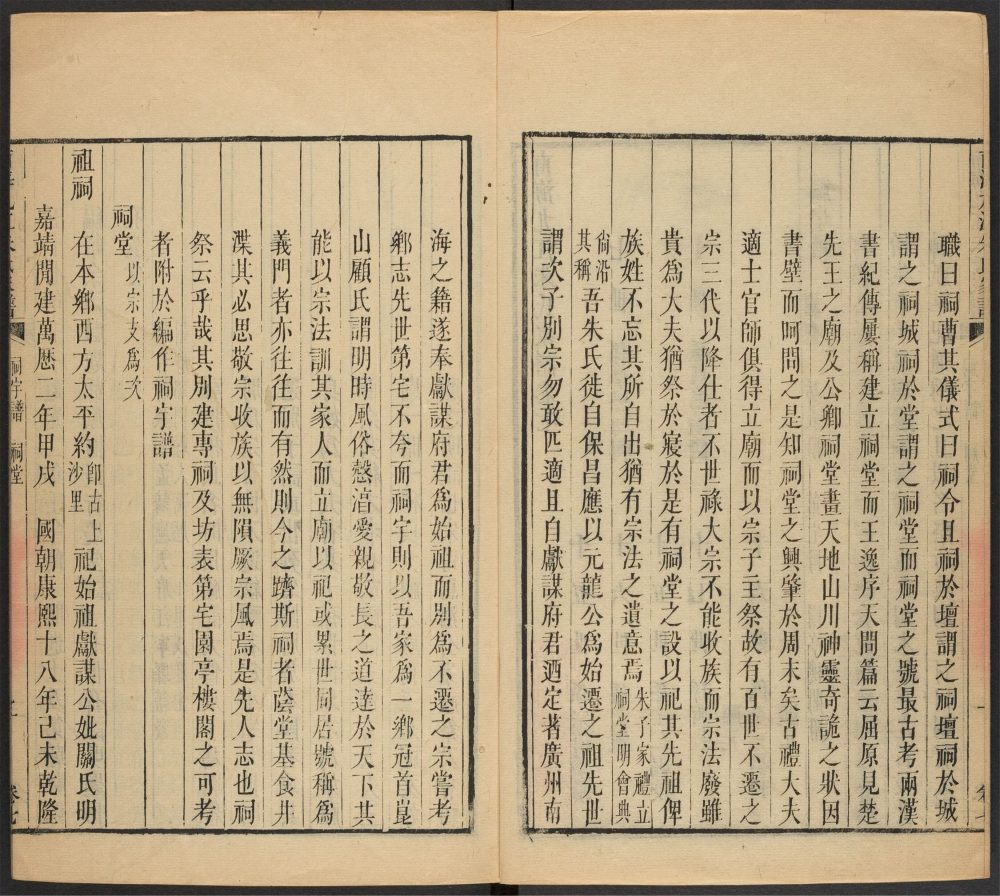 職曰祠曹其儀式曰祠令且祠於壇謂之祠壇祠於城
謂之祠城祠於堂謂之祠堂而祠堂之號最古考兩漢
書紀傳屢稱建立祠堂而王逸序天問篇云屈原見楚
先王之廟及公卿祠堂畫天地山川神靈奇詭之狀因
書壁而呵問之是知祠堂之興肇於周末矣古禮大夫
適士官師俱得立廟而以宗子主祭故有百世不遷之
宗三代以降仕者不世祿大宗不能收族而宗法廢雖
貴為大夫猶祭於寢於是有祠堂之設以祀其先祖俾
族姓不忘其所自出猶有宗法之遺意焉朱子家禮立祠堂明會典
尙沿其稱吾朱氏徙自保昌應以元龍公為始遷之祖先世
謂次子別宗勿敢匹適且自獻謀府君迺定著廣州南
海之籍遂奉獻謀府君為始祖而別為不遷之宗嘗考
鄉志先世第宅不夸而祠宇則以吾家為一鄉冠首崑
山顧氏謂明時風俗慤湻愛親敬長之道達於天下其
能以宗法訓其家人而立廟以祀或累世同居號稱為
義門者亦往往而有然則今之躋斯祠者蔭堂基食井
渫其必思敬宗收族以無隕厥宗風焉是先人志也祠
祭云乎哉其別建專祠及坊表第宅園亭樓閣之可考
者附於編作祠宇譜
祠堂以宗支為次
祖祠
在本鄉西方太平約卽古上沙里祀始祖獻謀公妣關氏明
嘉靖閒建萬歷二年甲戌 國朝康熙十八年己未乾隆
祠宇譜 祠堂
卷七